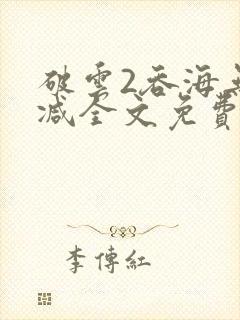 破雲2吞海無
减全文免費
李傳紅